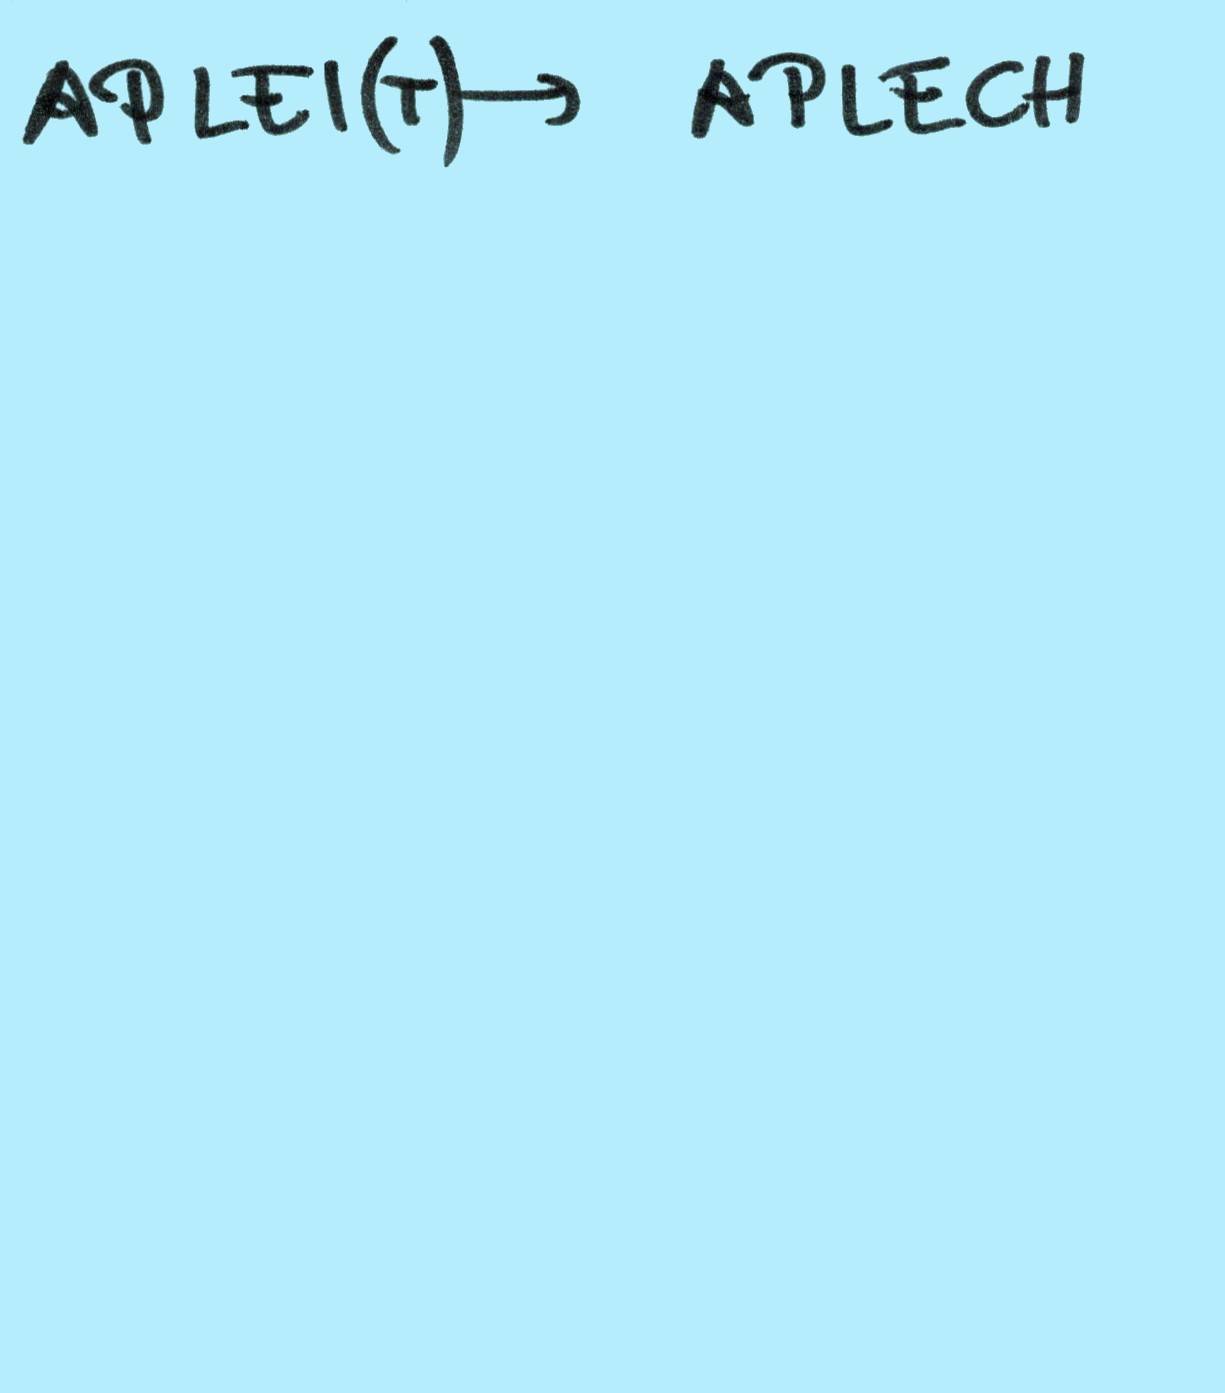 APLEI(T) → APLECH